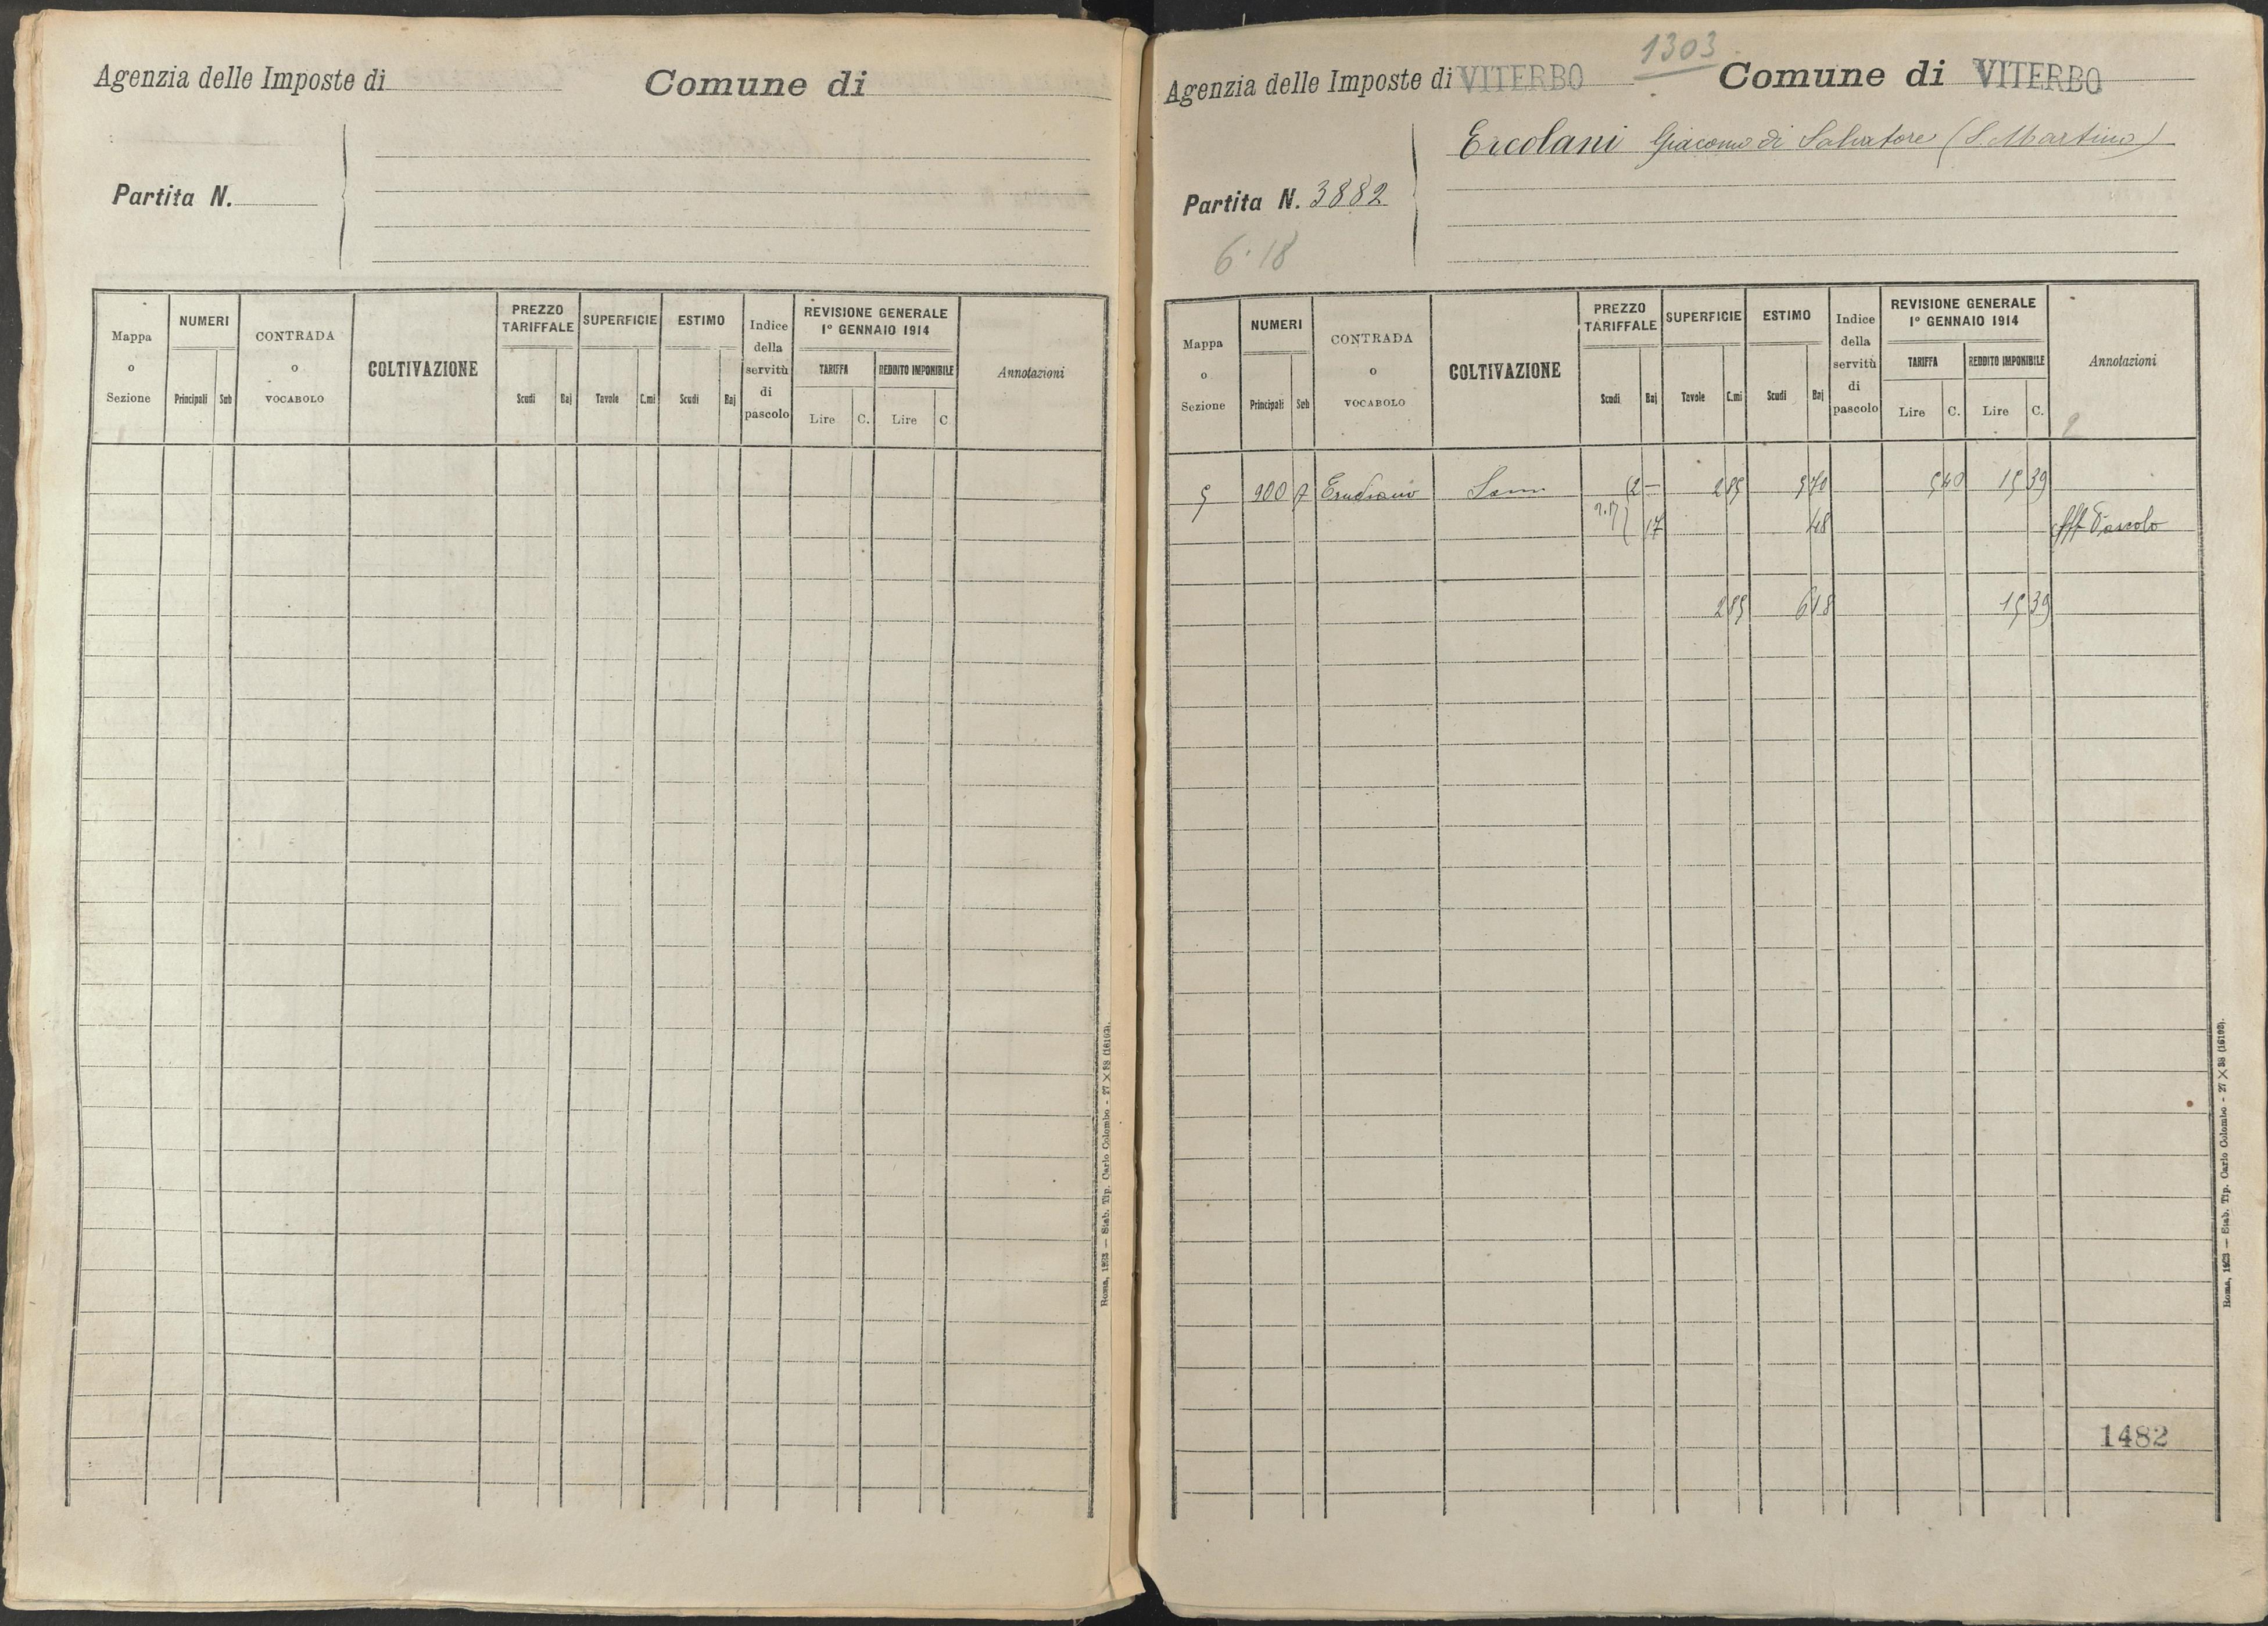 Agenzia delle Imposte di
Comune di
Partita N.
Mappa o Sezione
NUMERI
Principali Sub
CONTRADA o VOCABOLO
COLTIVAZIONE
PREZZO TARIFFALE
Scudi Baj
SUPERFICIE
Tavole C.mi
ESTIMO
Scudi Baj
Indice della servitù di pascolo
REVISIONE GENERALE
1° GENNAIO 1914
TARIFFA
Lire C.
REDDITO IMPONIBILE
Lire C
Annotazioni
Roma, 1923 — Stab. Tip. Carlo Colombo - 27 X 38 (16193).
1303
Agenzia delle Imposte di VITERBO
Comune di VITERBO
Ercolani Giacomo di Salvatore (S. Martino)
Partita N. 3882
6.18
Mappa o Sezione
NUMERI
Principali Sub
CONTRADA o VOCABOLO
COLTIVAZIONE
PREZZO TARIFFALE
Scudi Baj
SUPERFICIE
Tavole C.mi
ESTIMO
Scudi Baj
Indice della servitù di pascolo
REVISIONE GENERALE
1° GENNAIO 1914
TARIFFA
Lire C.
REDDITO IMPONIBILE
Lire C.
Annotazioni
5 900 2 — 2 85 5 70 5 40 15 39
2.17 17 48 Pascolo
2 85 6 18 15 39
1482
Roma, 1923 — Stab. Tip. Carlo Colombo - 27 X 38 (16193).